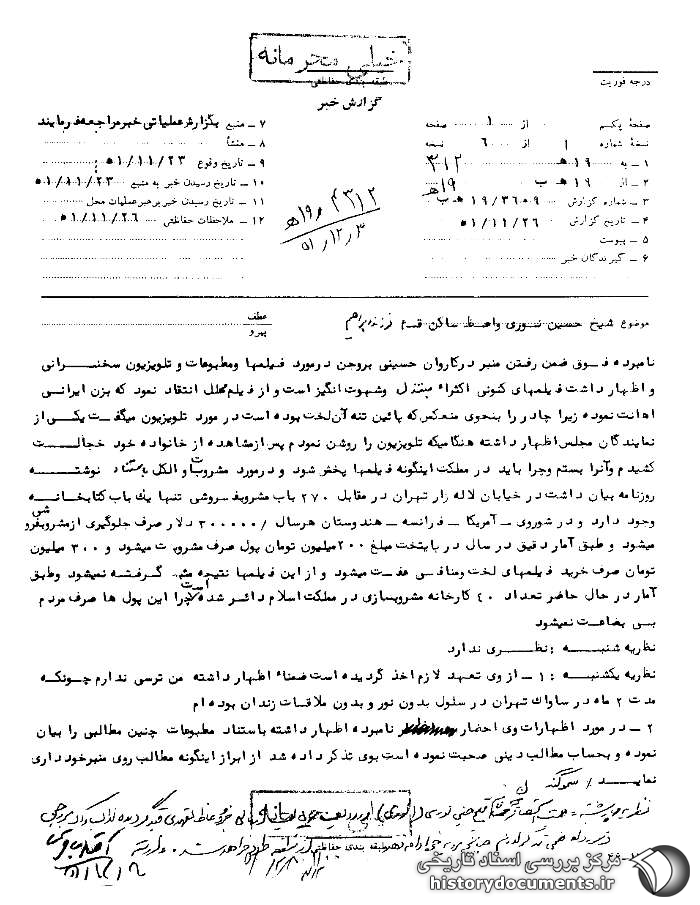 خیلی محرمانه
طبقه بندی حفاظتی
درجه فوریت
گزارش خبر
صفحهٔ یکم از ۱ صفحه
نسخهٔ شماره ۱ از ۶ نسخه
۱ ـ به ۱۹ هـ ۳۱۲
۲ ـ از ۱۹ هـ ب ۱۹هـ
۳ ـ شماره گزارش ۱۹/۳۶۰۹ هـ ب
۴ ـ تاریخ گزارش ۵۱/۱۱/۲۶
۵ ـ پیوست
۶ ـ گیرندگان خبر
۷ ـ منبع بگزارش عملیاتی خبر مراجعه فرمایند
۸ ـ منشأ
۹ ـ تاریخ وقوع ۵۱/۱۱/۲۳
۱۰ ـ تاریخ رسیدن خبر به منبع ۵۱/۱۱/۲۳
۱۱ ـ تاریخ رسیدن خبر برهبر عملیات محل
۱۲ ـ ملاحظات حفاظتی ۵۱/۱۱/۲۶
۴۳۱۲ / ۱۹هـ
۵۱/۱۲/۳
موضوع شیخ حسین نوری واعظ ساکن قم فرزند ابراهیم
عطف
پیرو
نامبرده فوق ضمن رفتن منبر درکاروان حسینی بروجن درمورد فیلمها ومطبوعات و تلویزیون سخنرانی
و اظهار داشت فیلمهای کنونی اکثراً مبتذل وشهوت انگیز است و از فیلم محلل انتقاد نمود که بزن ایرانی
اهانت نموده زیرا چادر را بنحوی منعکس که پائین تنه آن لخت بوده است در مورد تلویزیون میگفت یکی از
نمایندگان مجلس اظهار داشته هنگامیکه تلویزیون را روشن نمودم پس ازمشاهده از خانواده خود خجالت
کشیدم وآنرا بستم وچرا باید در مملکت اینگونه فیلمها پخش شود و درمورد مشروبات و الکل باستناد نوشته
روزنامه بیان داشت در خیابان لاله زار تهران در مقابل ۲۷۰ باب مشروبفروشی تنها یك باب کتابخانه
وجود دارد و در شوروی ـ آمریکا ـ فرانسه ـ هندوستان هرسال /۳۰۰۰۰۰ دلار صرف جلوگیری ازمشروبفروشی
میشود و طبق آمار دقیق در سال در پایتخت مبلغ ۲۰۰میلیون تومان پول صرف مشروبات میشود و ۳۰۰ میلیون
تومان صرف خرید فیلمهای لخت ومنافی عفت میشود و از این فیلمها نتیجه مثبه گرفته نمیشود وطبق
آمار در حال حاضر تعداد ۴۰ کارخانه مشروبسازی در مملکت اسلام دائر شده است چرا این پول ها صرف مردم
بی بضاعت نمیشود
نظریه شنبه : نظری ندارد
نظریه یکشنبه : ۱ ـ از وی تعهد لازم اخذ گردیده است ضمناً اظهار داشته من ترسی ندارم چونکه
مدت ۲ ماه در ساواك تهران در سلول بدون نور و بدون ملاقات زندان بوده ام
۲ ـ در مورد اظهارات وی احضار نامبرده اظهار داشته باستناد مطبوعات چنین مطالبی را بیان
نموده و بحساب مطالب دینی صحبت نموده است بوی تذکر داده شد از ابراز اینگونه مطالب روی منبر خودداری
نماید
طبقه بندی حفاظتی
مرکز بررسی اسناد تاریخی
historydocuments.ir